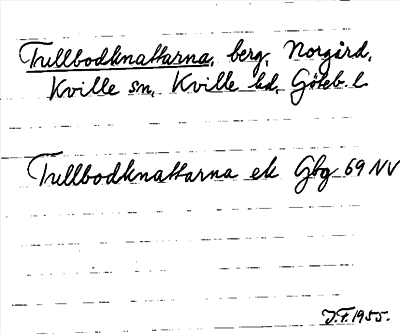 Tullbodknattarna, berg, Norgård,
Kville sn, Kville hd, Göteb. l.
Tullbodknattarna ek Gbg 69 NV
J.F. 1955.